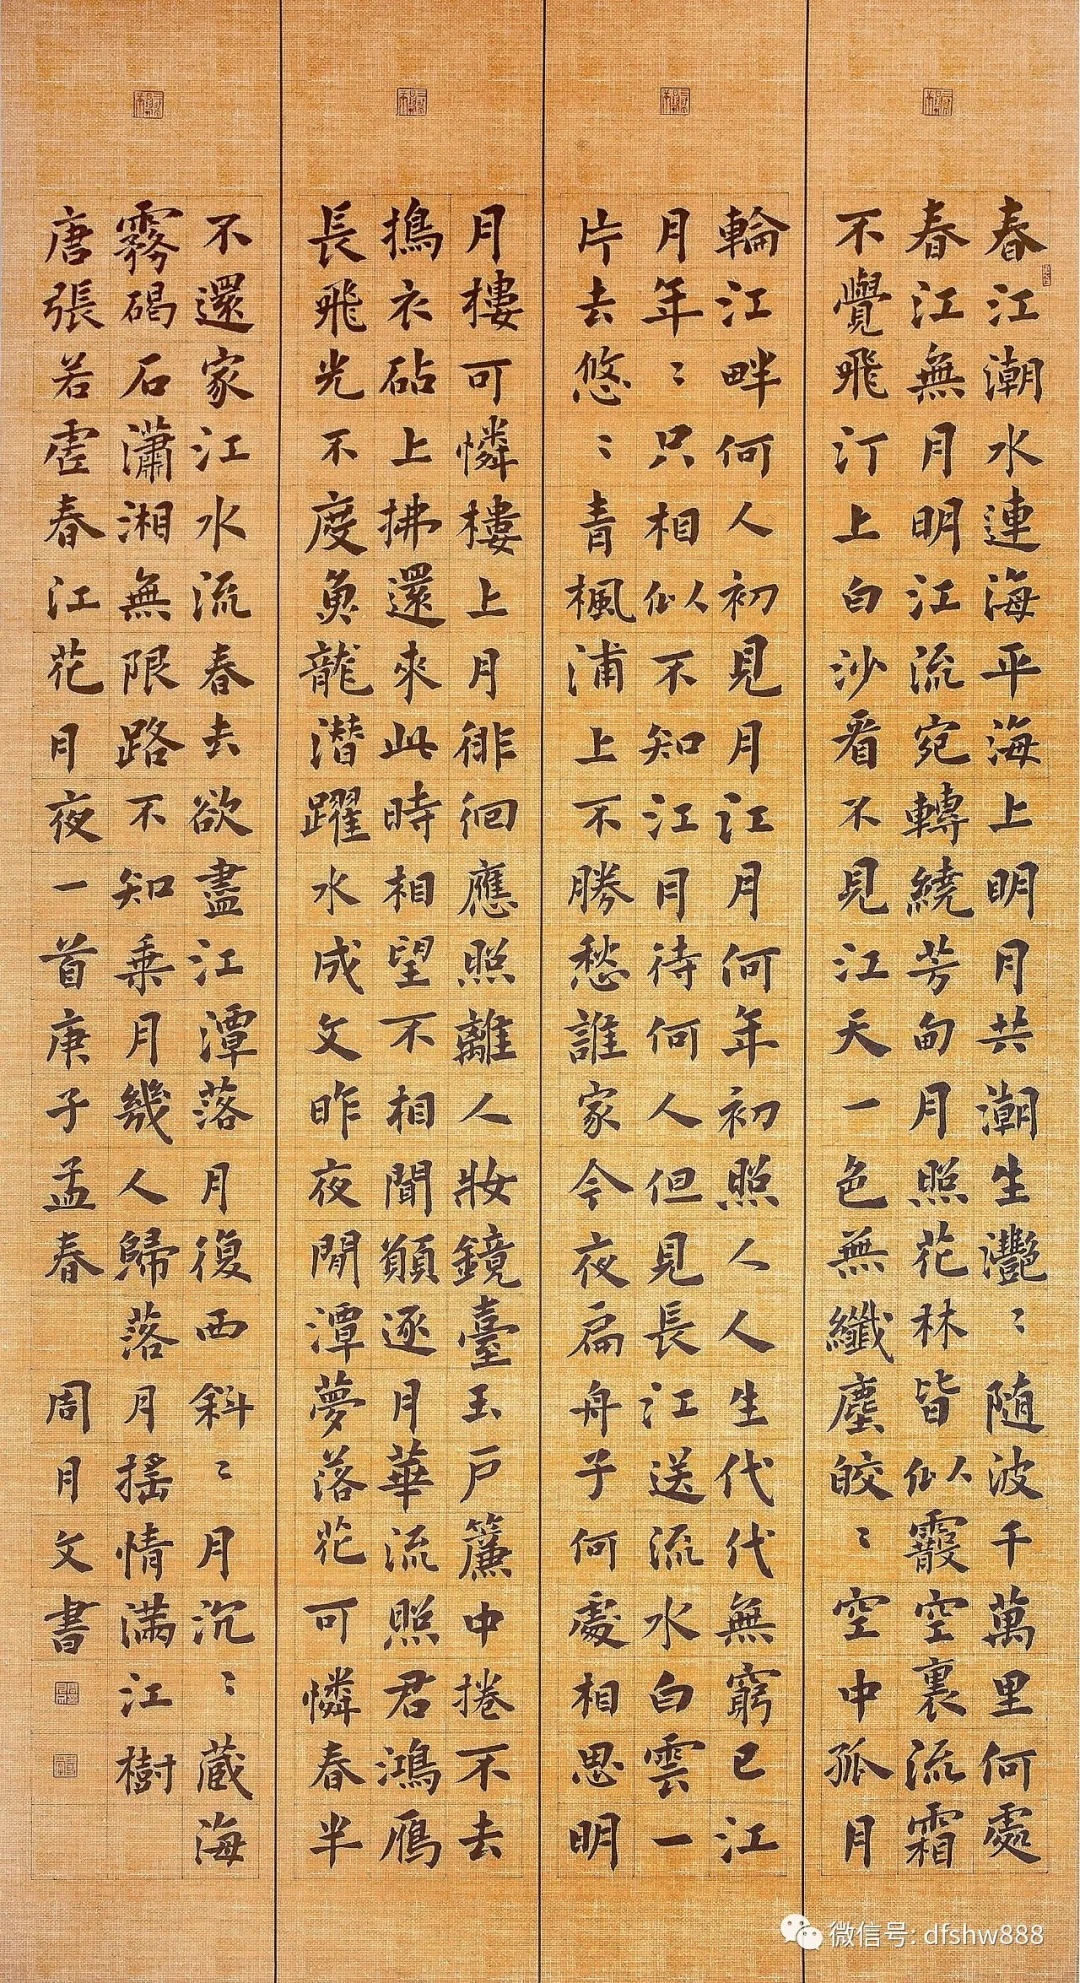 春江潮水連海平海上明月共潮生灧〻随波千萬里何處
春江無月明江流宛轉繞芳甸月照花林皆似霰空裏流霜
不覺飛汀上白沙看不見江天一色無纖塵皎〻空中孤月
輪江畔何人初見月江月何年初照人人生代代無窮已江
月年〻只相似不知江月待何人但見長江送流水白雲一
片去悠〻青楓浦上不勝愁誰家今夜扁舟子何處相思明
月樓可憐樓上月徘徊應照離人妝鏡臺玉戶簾中捲不去
搗衣砧上拂還來此時相望不相聞願逐月華流照君鴻雁
長飛光不度魚龍潛躍水成文昨夜閒潭夢落花可憐春半
不還家江水流春去欲盡江潭落月復西斜〻月沉〻蔵海
霧碣石瀟湘無限路不知乗月幾人歸落月搖情滿江樹
唐張若虛春江花月夜一首庚子孟春 周月文書
微信号: dfshw888